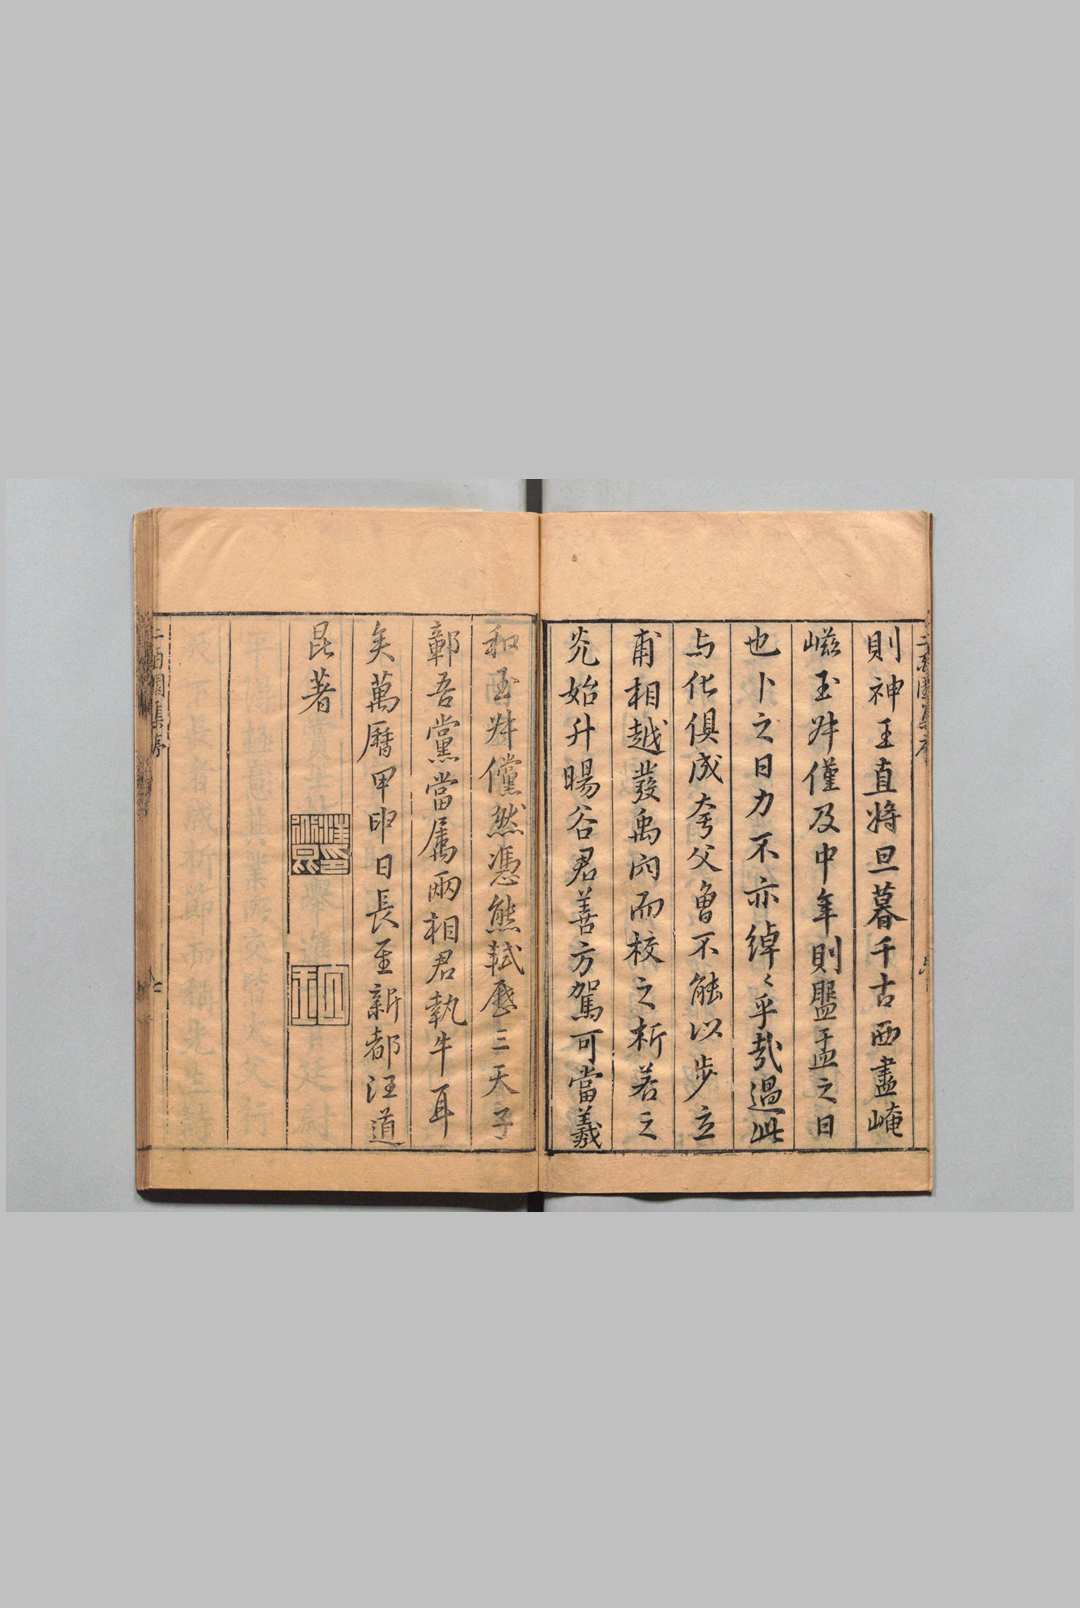 則神王直將旦暮千古西盡崦
嵫玉卅僅及中年則盥盂之日
也卜之日力不亦綽〻乎哉過此
与化俱成夸父曾不能以步立
甫相越發禹而校之析若之
始升暘谷君善方駕可當羲
和玉卅儻然憑熊軾歷三天子
鄣吾黨當属兩相君執牛耳
矣萬曆甲申日長至新都汪道
昆著
二酉園集序